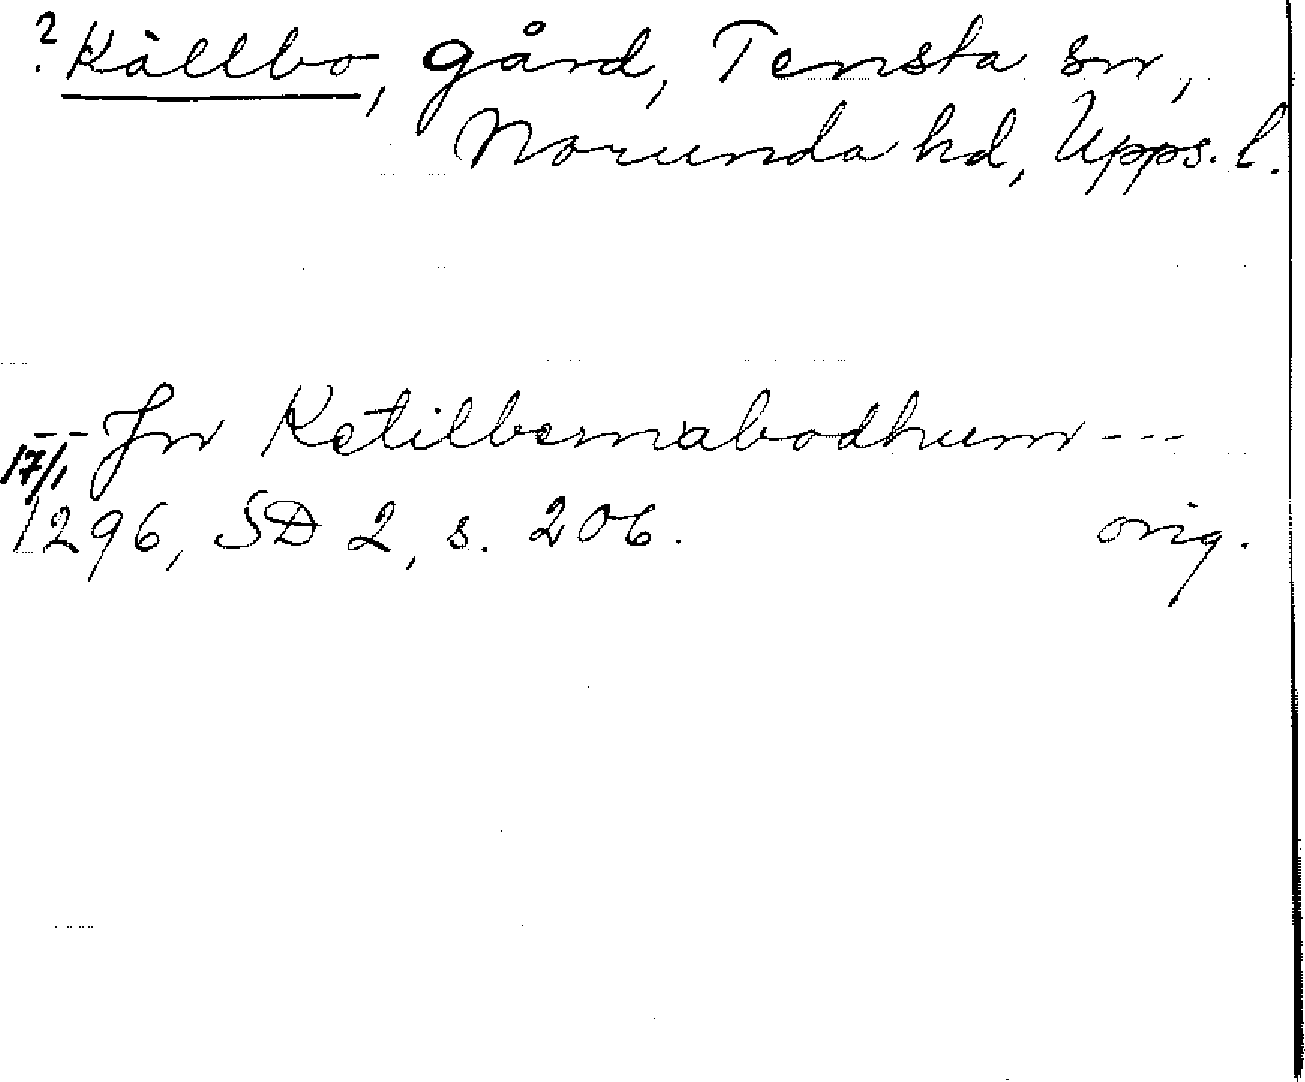 ? Källbo, gård, Tensta sn,
Norunda hd, Upps. l.
--- Jn Ketilbernabodhum ---
17/1 1296, SD 2, s. 206. orig.